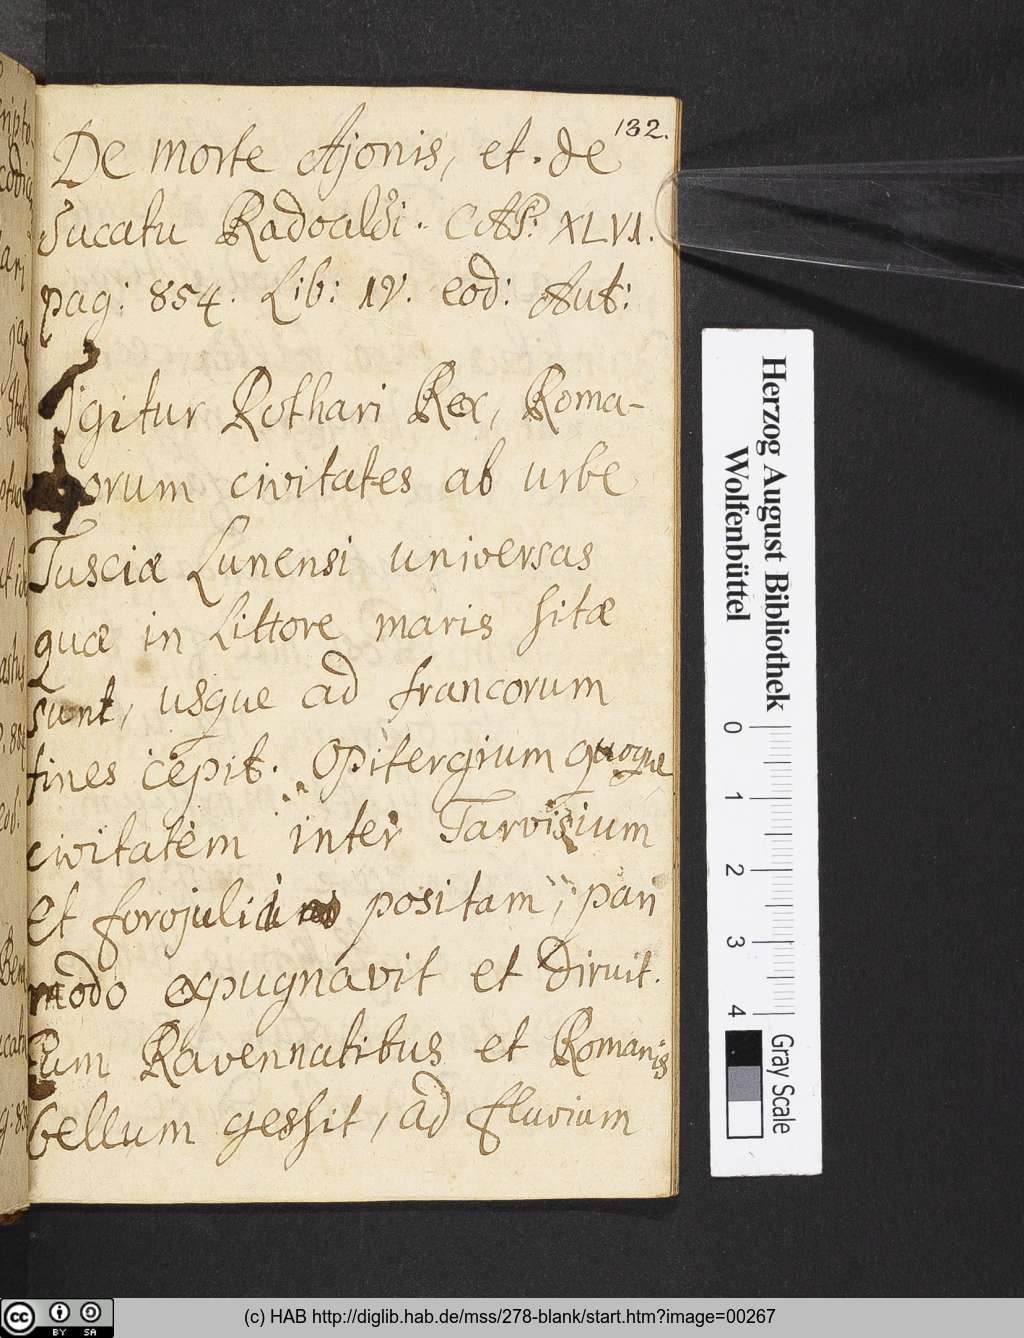 132.
De morte Ajonis, et. de
Ducatu Radoaldi. CAP: XLVI.
pag: 854. Lib: IV. eod: Aut:
Igitur Rothari Rex, Roma-
orum civitates ab urbe
Tusciæ Lunensi universas
quæ in Littore maris sitæ
sunt, usque ad francorum
fines cepit. Opitergium quoque
civitatem inter Tarvisium
et forojulii positam, pari
modo expugnavit et Diruit.
Cum Ravennatibus et Romanis
bellum gessit, ad fluvium
Herzog August Bibliothek
Wolfenbüttel
0 1 2 3 4
Gray Scale
(c) HAB http://diglib.hab.de/mss/278-blank/start.htm?image=00267
cc BY SA